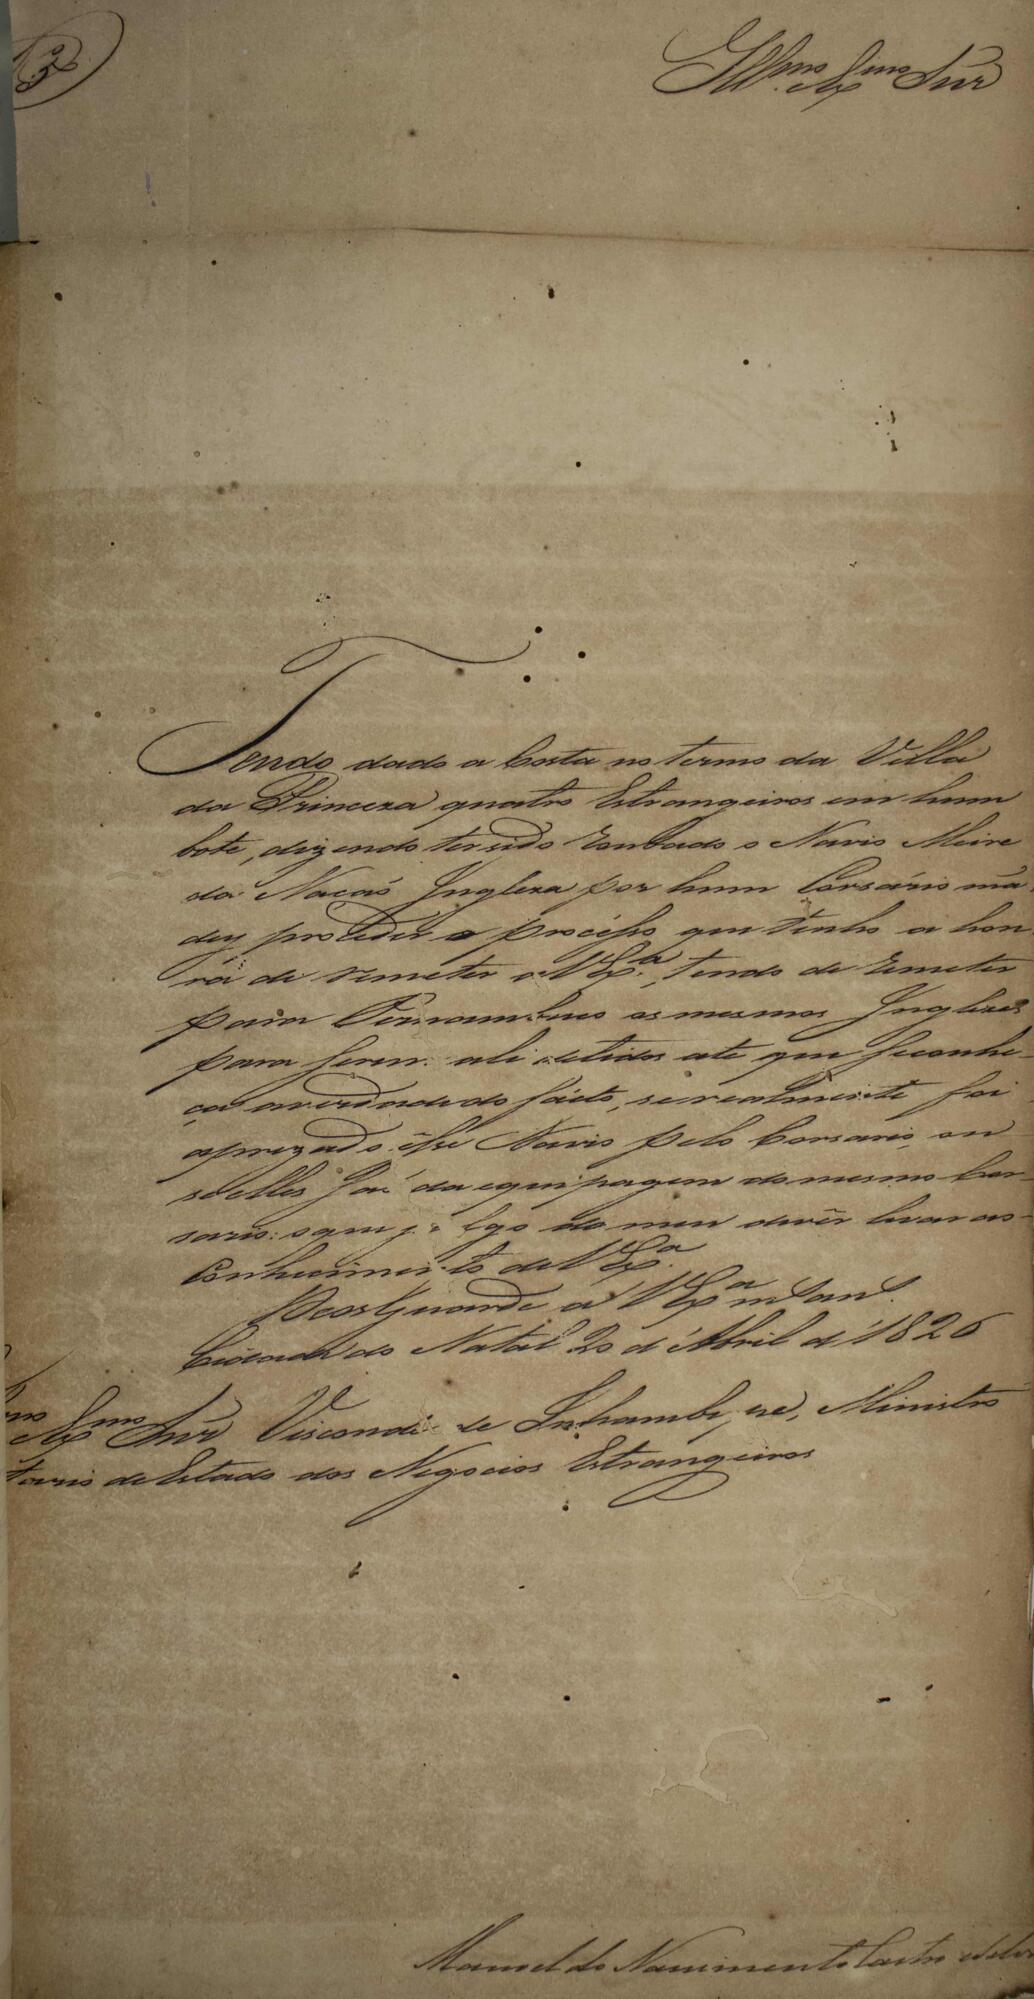 32
Illmo. Exmo Snr
Tendo dado a Costa no termo da Villa
da Princeza quatro Estrangeiros em hum
bote, dizendo ter sido roubado o Navio
da Nação Ingleza por hum Corsário má
dey proceder o procésso que tenho a hon
ra de remeter a V Exa., tendo de remeter
para Pernambuco os mesmos Inglezes
para serem ali detidos ate que se conhe-
ça a verdade do fácto, se realmente foi
aprezado esse Navio pelo Corsario, ou
se elles são da equipagem do mesmo Cor-
sario: o que julgo do meu devêr levar ao
Conhecimento de V Exa.
Deos Guarde a V Exa ms an.s
Cidade do Natal 20 d'Abril d'1826
mo Exmo Snr Visconde de Inhambupe, Ministro
tario de Estado dos Negocios Estrangeiros
Manoel do Nascimento Castro e Silva